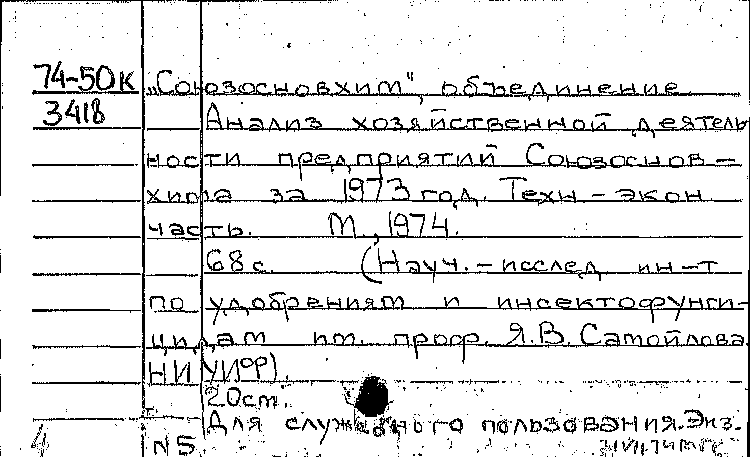 74-50к „Союзосновхим", объединение
3418 Анализ хозяйственной деятель
ности предприятий Союзоснов-
хима за 1973 год. Техн-экон
часть. М., 1974.
68 с. (Науч.-исслед ин-т
по удобрениям и инсектофунги-
цидам им. проф. Я.В. Самойлова
НИУИФ).
20см.
Для служебного пользования. Экз.
4 N5